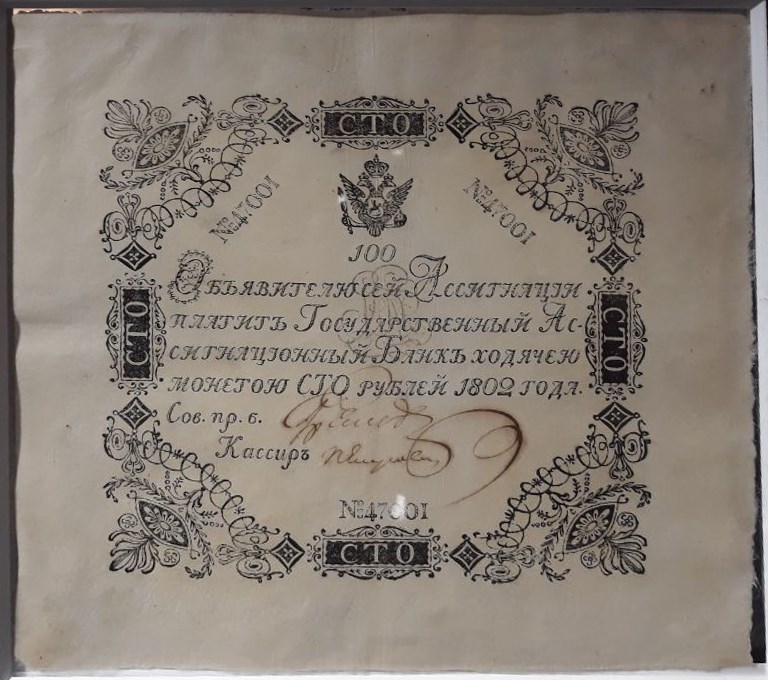 СТО
№47001 №47001
100
Объявителю сей Ассигнаціи
платитъ Государственный Ас-
сигнаціонный Банкъ ходячею
монетою СТО рублей 1802 года.
СТО СТО
Сов. пр. б.
Кассиръ
№47001
СТО